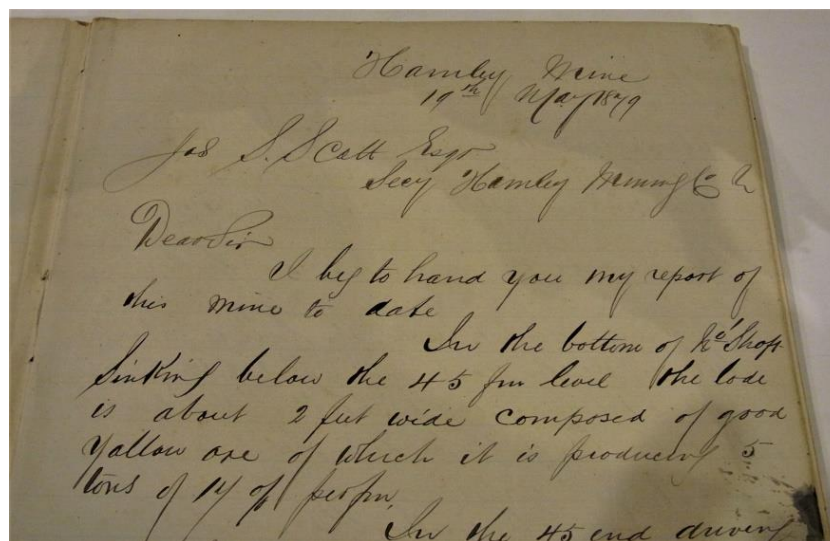 Hamley Mine
19th May 1879
Jas S. Scott Esqr
Secy Hamley Mining Co
Dear Sir
I beg to hand you my report of
this mine to date
In the bottom of No 1 Shaft
Sinking below the 45 fm level the lode
is about 2 feet wide composed of good
yallow ore of which it is producing 5
tons of 14 % per fm.
In the 45 end driving